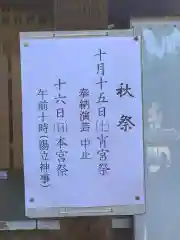 秋祭
十月十五日(土)宵宮祭
奉納演芸 中止
十六日(日)本宮祭
午前十時(湯立神事)